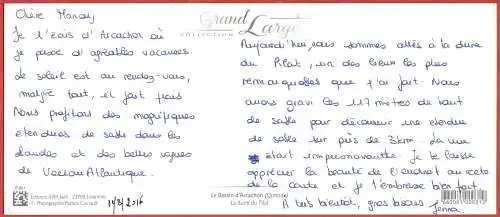 Chère Manou,
Je t'écris d'Arcachon où
je passe d'agréables vacances.
Le soleil est au rendez-vous,
malgré tout, il fait frais
Nous profitons des magnifiques
étendues de sable dans les
Landes et des belles vagues
de l'océan Atlantique.
Grand Large
COLLECTION
Aujourd'hui, nous sommes allés à la dune
du Pilat, un des lieux les plus
remarquables que j'ai fait. Nous
avons gravi les 117 mètres de haut
de sable pour découvrir une étendue
de sable sur près de 3km. La vue
était impressionnante. Je te laisse
apprécier la beauté de l'endroit au recto
de la carte et je t'embrasse bien fort
A très bientôt, gros bisous
Le Bassin d'Arcachon (Gironde)
La dune du Pilat
14/8/2016